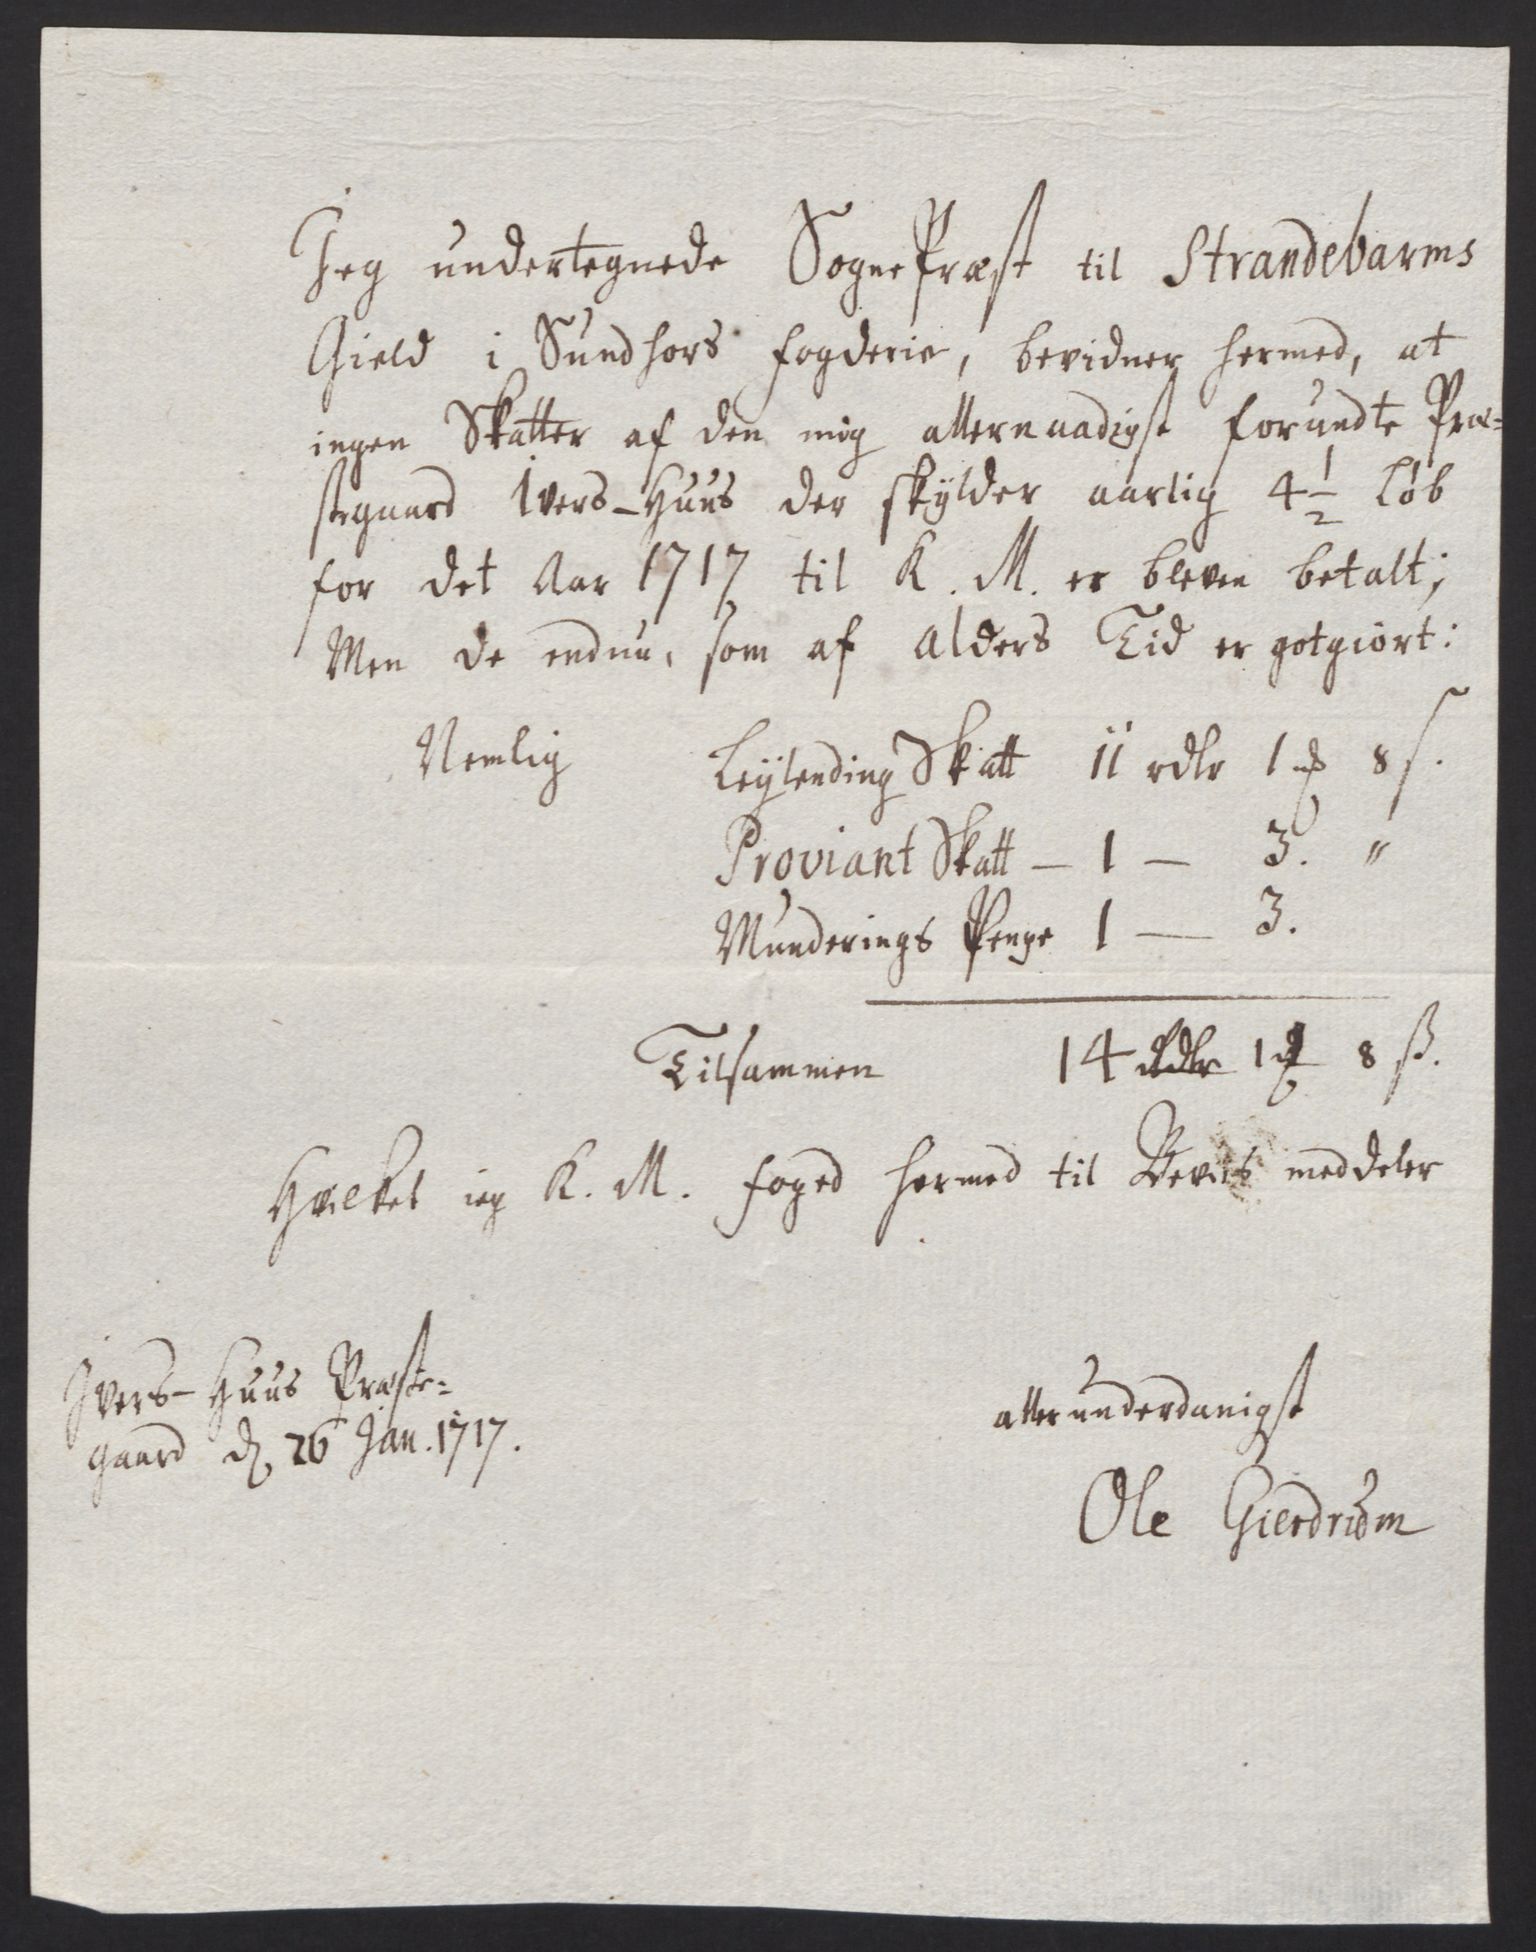 Jeg undertegnede SognePræst til Strandebarms
Gield i Sundhors fogderie, bevidner hermed, at
ingen Skatter af den mig allernaadigst forundte Præ=
stegaard Ivers-Huus der skylder aarlig 4 1/2 Løb
for det Aar 1717 til K. M. er bleven betalt;
Men de endnu, som af Alders Tid er gotgiort:
Nemlig Leÿlending Skatt 11 rdlr 1 8 s.
Proviant Skatt — 1 — 3. "
Munderings Penge 1 — 3.
Tilsammen 14 Rdlr 1 8 ß.
Hvilket ieg K. M. foged hermed til Beviis meddeler
Ivers-Huus Præste=
gaard d 26 Jan. 1717.
allerunderdanigst
Ole Gierdrum